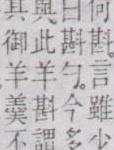 何斟。言雖少
曰斟勺。今多
與此羊斟謂
其御羊羹不